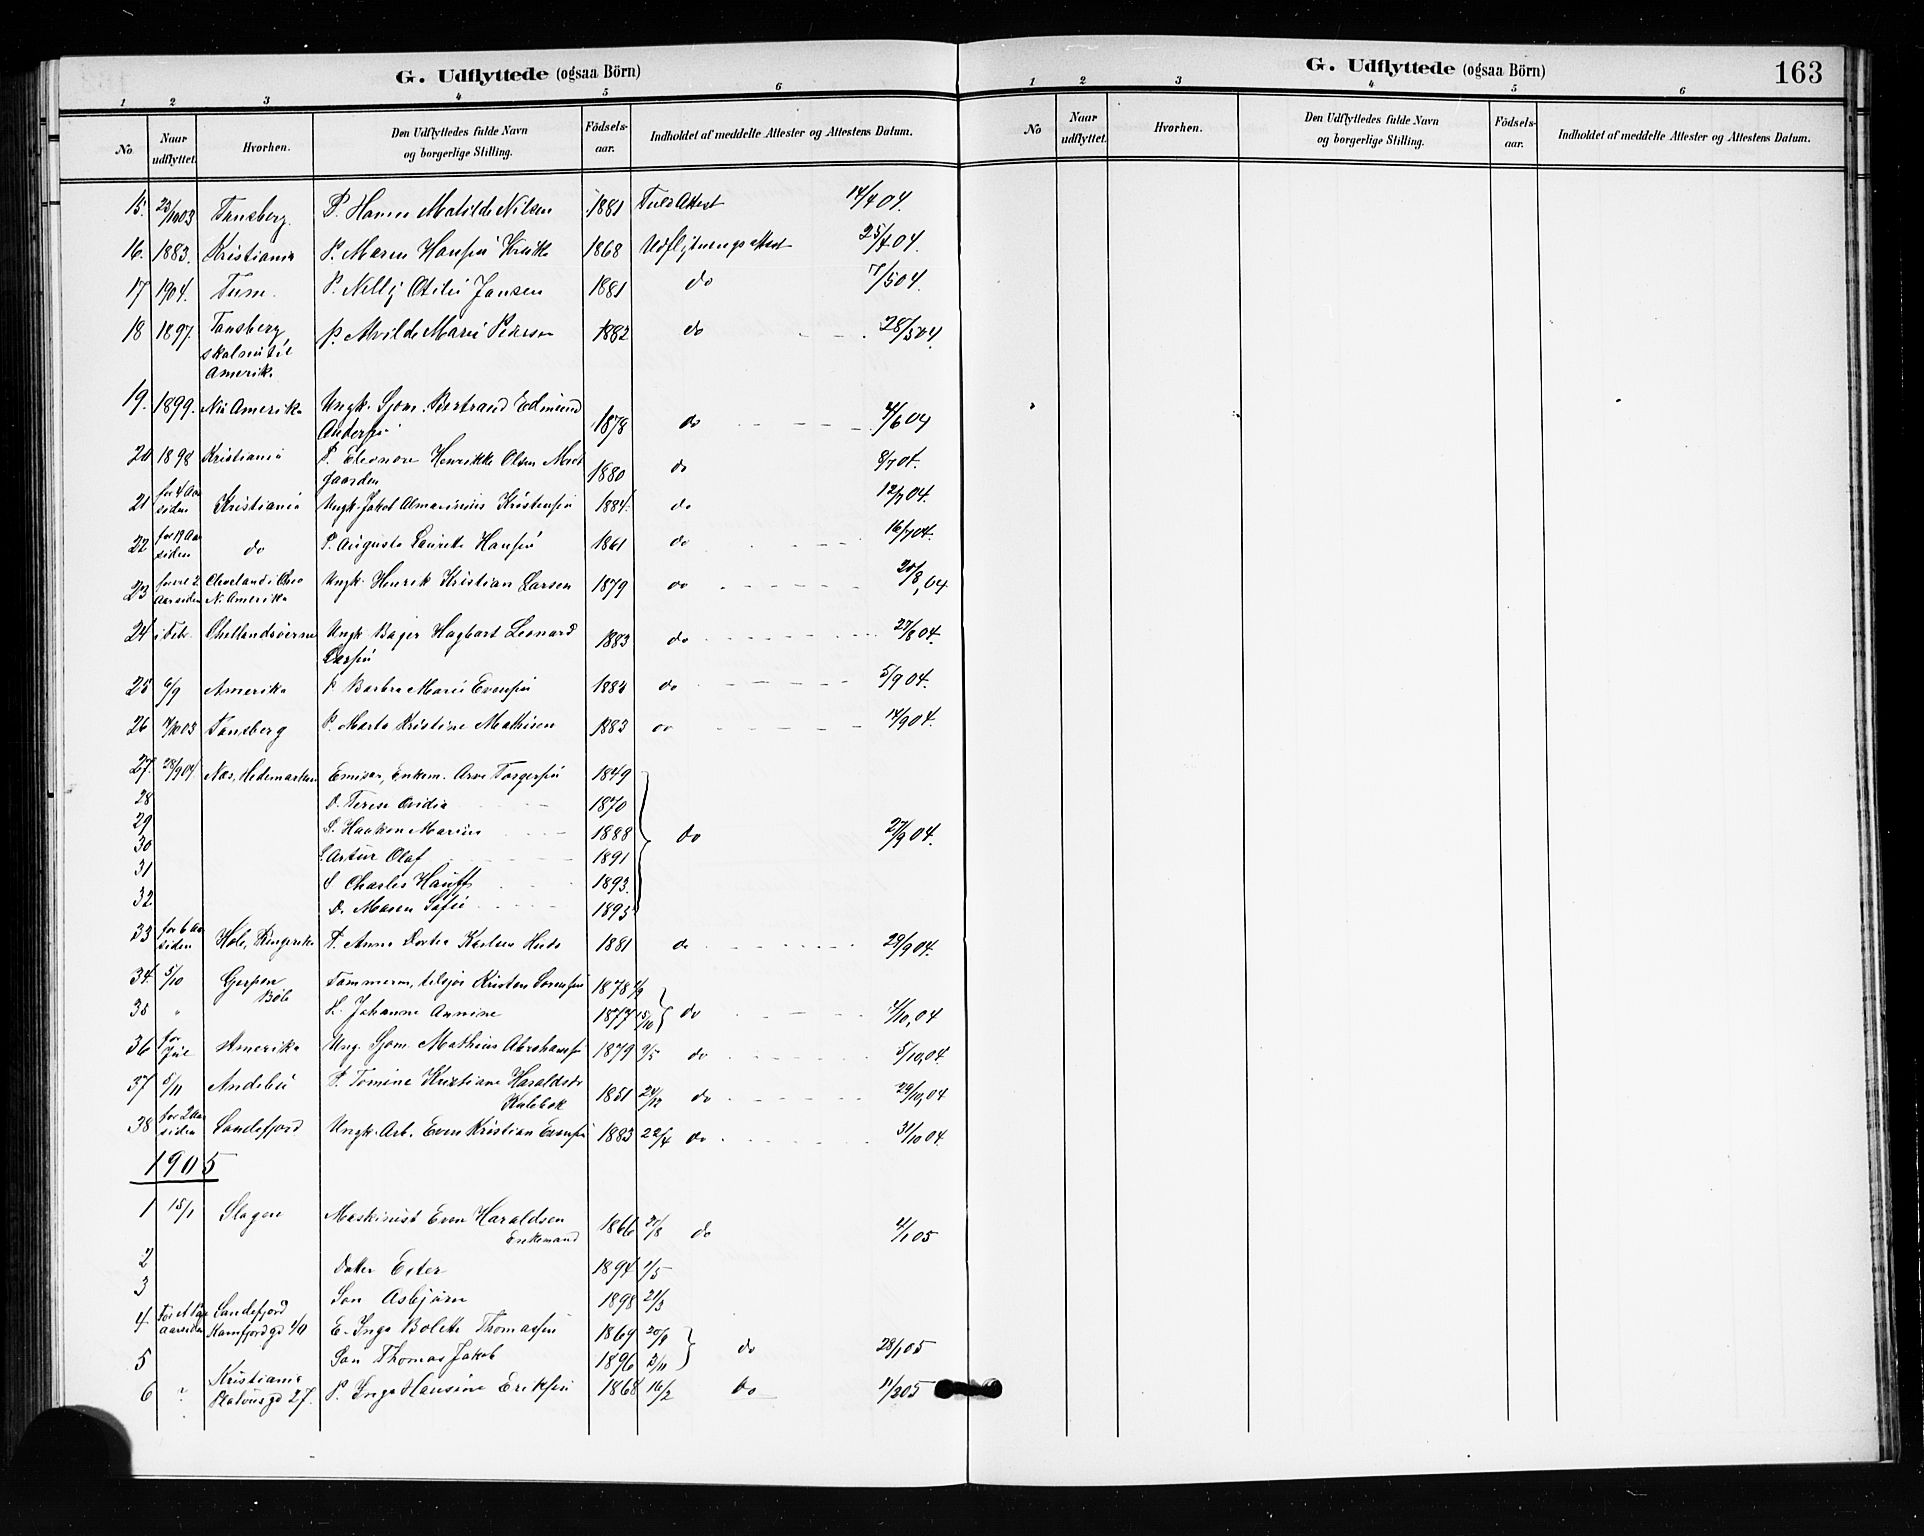 G. Udflyttede (ogsaa Börn)
1 2 3 4 5 6
No Naar udflyttet. Hvorhen. Den Udflyttedes fulde Navn og borgerlige Stilling. Födsels-aar. Indholdet af meddelte Attester og Attestens Datum.
15. 23/10 03 Tønsberg. P. Hanna Matilde Nilsen 1881 14/4 04.
16. 1883. Kristiania P. Maren 1868 Udflytningsattest 25/4 04.
17 1904. P. Nelly Otilie Jansen 1881 do 7/5 04.
18 1897. Tønsberg P. Alvilde Marie 1882 do 28/5 04.
Amerik.
19. 1899. N. Amerika Ungk. Sjøm. Bertrand Edmund
Andersen 1878 do 4/6 04
20 1898 Kristiania P. Eleonore Henrikke Olsen
gaarden 1880 do 8/7 04.
21 for 4 Aar siden Kristiania Ungk. Jakob Kristensen 1884. do 12/7 04.
22 for 19 Aar siden do P. Augusta Laurette Hansen 1861 do 16/7 04.
23 Cleveland i Ohio
Aar siden N. Amerika Ungk. Henrik Kristian Larsen 1879 do 20/8, 04
24 i Febr. Ungk. Bager Hagbart Leonard
Larsen 1883 do 27/8 04.
25 6/9 Amerika P. Barbra Marie Evensen do 5/9 04.
26 7/10 03 Tønsberg P. Marta Kristine Mathisen 1883 do 14/9 04.
27. 28/9 04 Næs, Hedemarken Emisær, Enkem. Arve Torgersen 1849
28 D. Terese Ovidia 1870
29 S. Haakon Marius 1888 do 27/9 04.
30 S. Artur Olaf 1891
31 S. Charles Hauff 1893.
32 D. Maren Sofie 1895
33 for 6 Aar siden Hole, Ringerike P. Anna Dortea Karlsen 1881 do 29/9 04.
34. 5/10 Gerpen Tømmerm. Kristen Sørensen 1878
Böle
35 " H. Johanne Annine 1877 15/10 do 4/10, 04
36 før Jul Amerika Ung. Sjøm. Mathias Abrahamsen 1879 9/5 do 5/10, 04
37 5/11 Andebu P. Tomine Kristiane Haraldsdr
1851 24/12 do 29/10, 04
38 for 2 Aar siden Sandefjord Ungk. Arb. Even Kristian Evensen 1883 22/4 do 31/10 04
1905
1 15/1 Slagen Maskinist Even Haraldsen
Enkemand 1866 21/8 do 4/1 05
2 Datter Ester 1894 1/5
3 Søn Asbjørn 1898 21/3
4. aar siden Sandefjord
Kamfjordgd E. Inga Bolette Thomassen 1869 20/9
5 Søn Thomas Jakob 1896 2/11 do 28/1 05
6 " Kristiania
27. P. Inga Hansine Eriksen 1868 16/2 do 11/2 05
G. Udflyttede (ogsaa Börn) 163
1 2 3 4 5 6
No Naar udflyttet. Hvorhen. Den Udflyttedes fulde Navn og borgerlige Stilling. Födsels-aar. Indholdet af meddelte Attester og Attestens Datum.